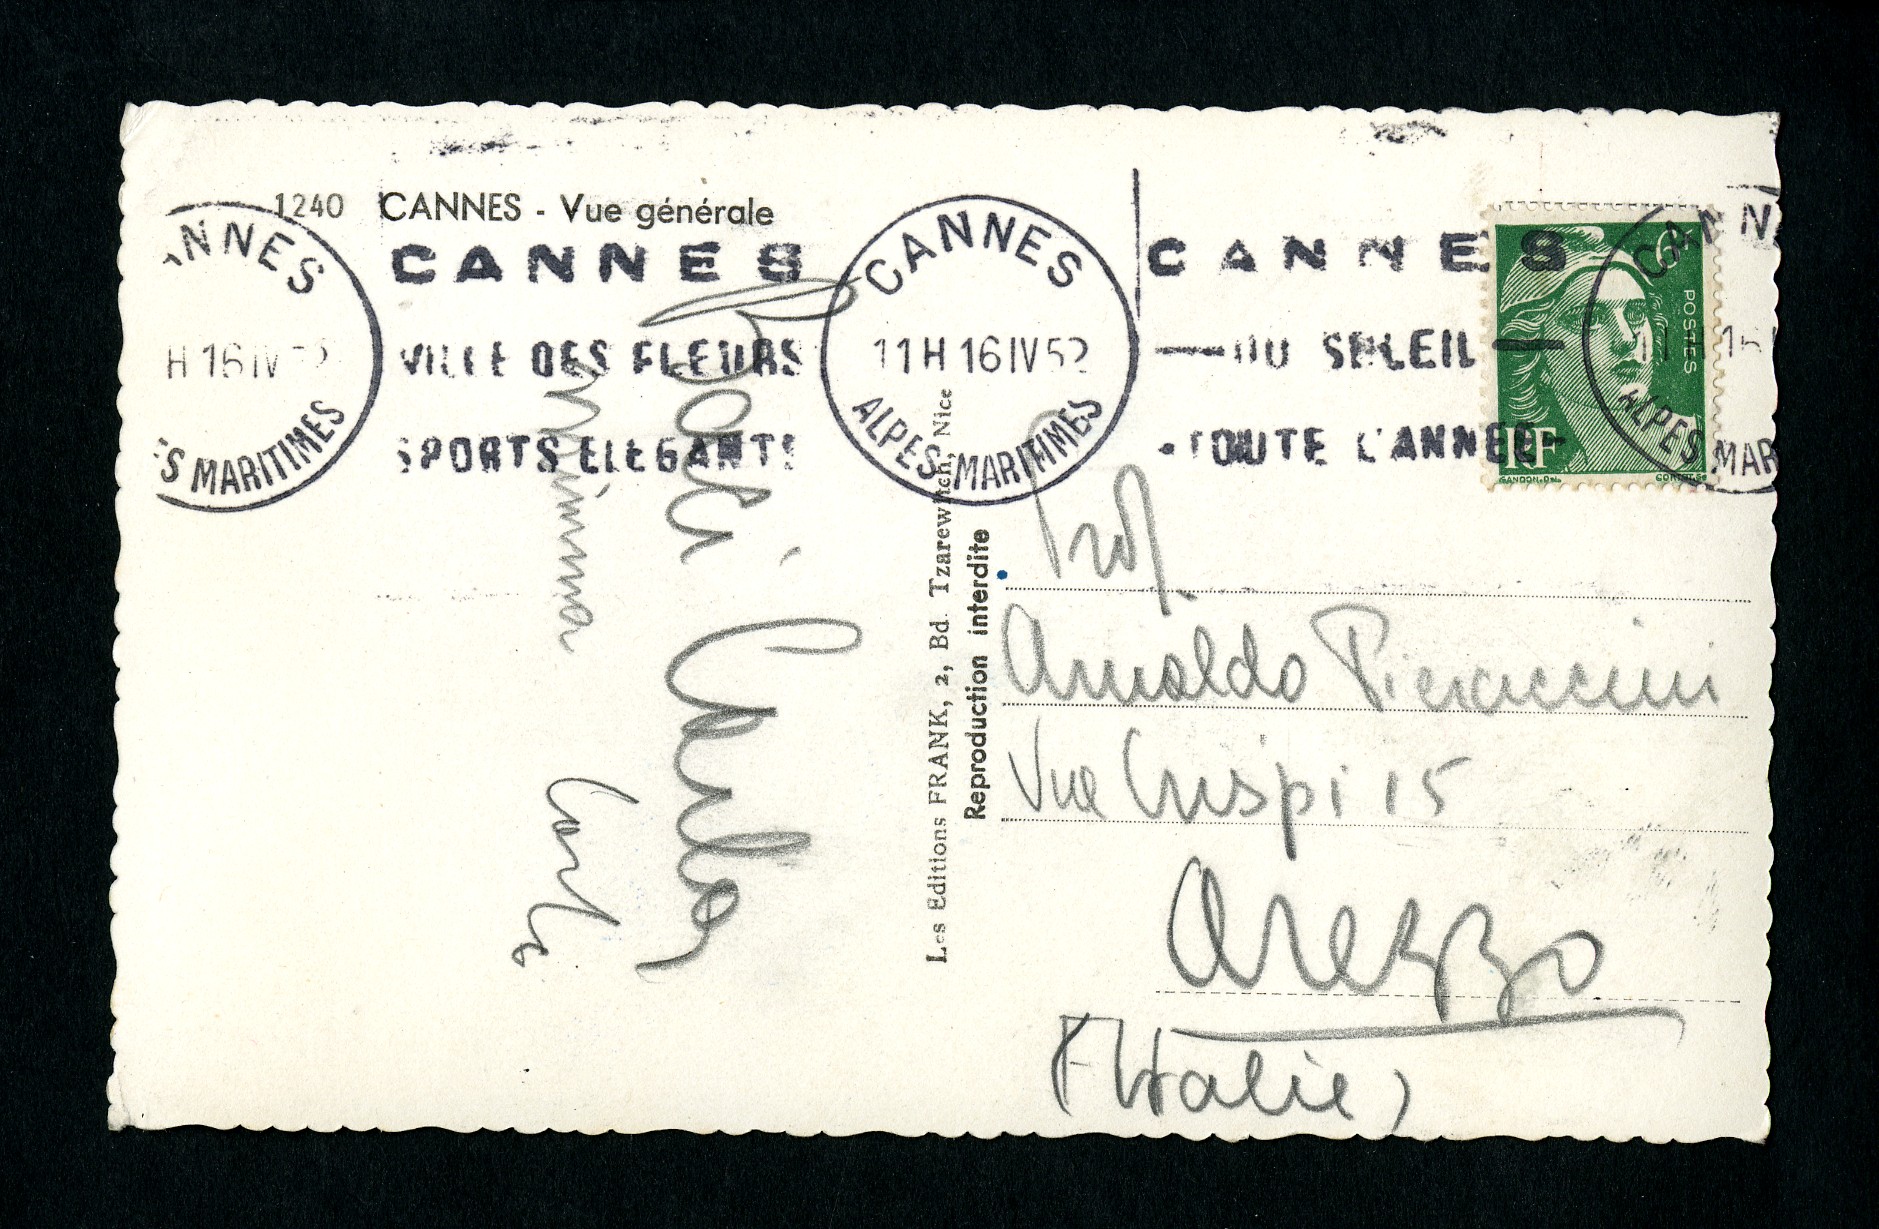 1240 CANNES - Vue générale
NNES
H 16 IV 52
S MARITIMES
CANNES
VILLE DES FLEURS
SPORTS ELEGANTS
CANNES
11H 16 IV 52
ALPES MARITIMES
CANNES
DU SOLEIL
TOUTE L'ANNEE
6F
POSTES
RF
GANDON.DEL
CANNE
11 H 16 I
ALPES MAR
Carlo
Mimma
Carlo
Les Editions FRANK, 2, Bd Tzarewitch, Nice
Reproduction interdite
Prof.
Arnaldo Pieraccini
Via Crispi 15
Arezzo
(Italie)